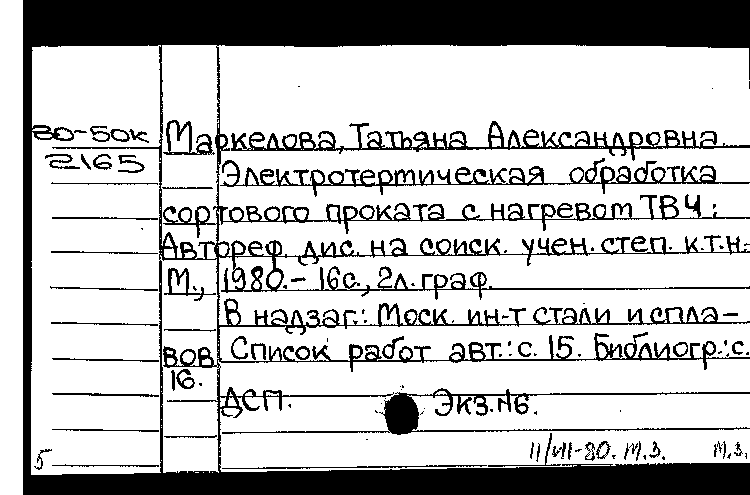 80-50к
2165
Маркелова, Татьяна Александровна.
Электротермическая обработка
сортового проката с нагревом ТВЧ:
Автореф. дис. на соиск. учен. степ. к.т.н.
М., 1980.- 16с., 2л. граф.
В надзаг.: Моск. ин-т стали и спла-
вов. Список работ авт.: с. 15. Библиогр.: с.
16.
ДСП. Экз.№6.
5 11/VII-80. М.З. М.З.